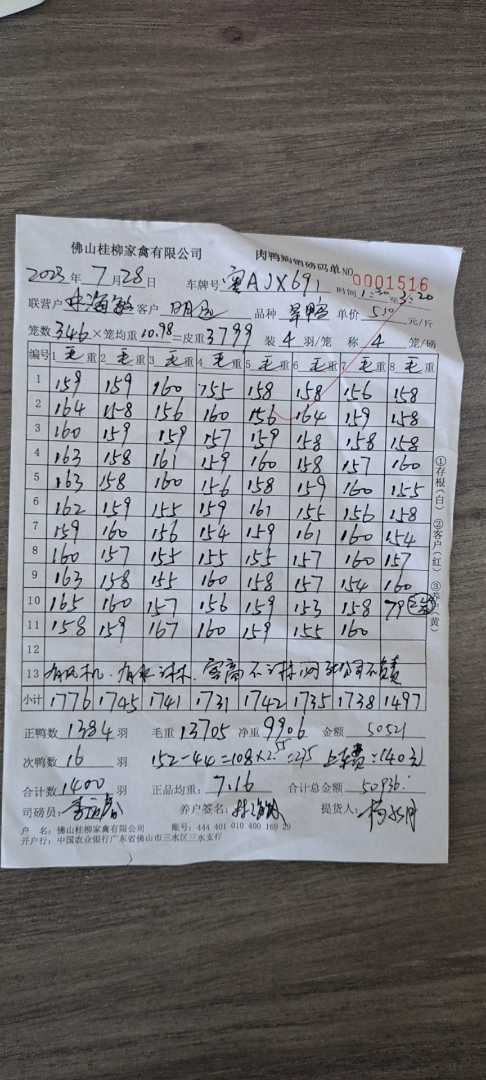 佛山桂柳家禽有限公司 肉鸭购销磅码单 NO 0001516
2023年 7月28日 车牌号 粤AJX691 时间 1:30 至 3:20
联营户 客户 明记 品种 旱鸭 单价 510 元/斤
笼数 346 × 笼均重 10.98 =皮重 3799 装 4 羽/笼 称 4 笼/磅
编号 1 毛重 2 毛重 3 毛重 4 毛重 5 毛重 6 毛重 7 毛重 8 毛重
1 159 159 160 155 158 158 156 158
2 164 158 156 160 156 164 159 158
3 160 159 159 157 159 158 158 158
4 163 158 161 159 160 158 157 160
5 163 158 160 156 158 159 160 155
6 162 159 155 159 161 155 156 158
7 159 160 156 154 159 161 160 154
8 160 157 155 155 155 157 160 157
9 163 158 155 160 158 157 154 160
10 165 160 157 156 159 153 158 79
11 158 159 167 160 159 155 160
12
13
小计 1776 1745 1741 1731 1742 1735 1738 1497
①存根(白) ②客户(红) ③ (黄)
正鸭数 1384 羽 毛重 13705 净重 9906 金额 50521
次鸭数 16 羽 152-44=108×2.55=275 上车费:140元
合计数 1400 羽 正品均重: 7.16 合计总金额 50936
司磅员: 养户签名: 提货人:
户 名: 佛山桂柳家禽有限公司 账号: 444 401 010 400 169 29
开户行: 中国农业银行广东省佛山市三水区三水支行